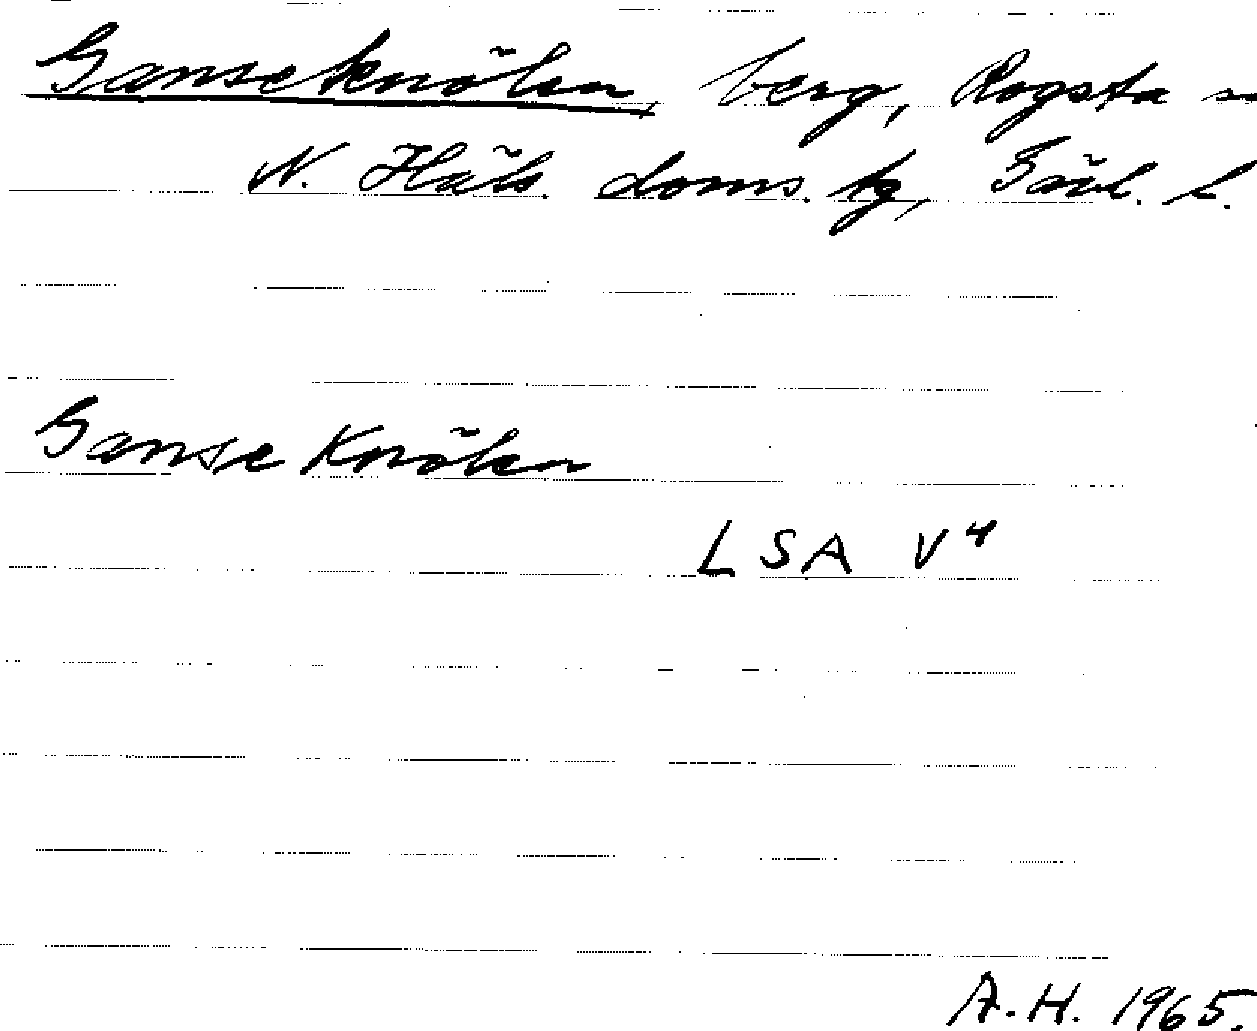 Ganseknölen berg, Rogsta sn
N. Häls. doms. tg, Gävl. l.
Ganse Knölen
LSA V4
A.H. 1965.